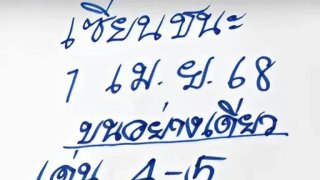 เซียนชนะ
1 เม.ย. 68
บนอย่างเดียว
เด่น 4-5